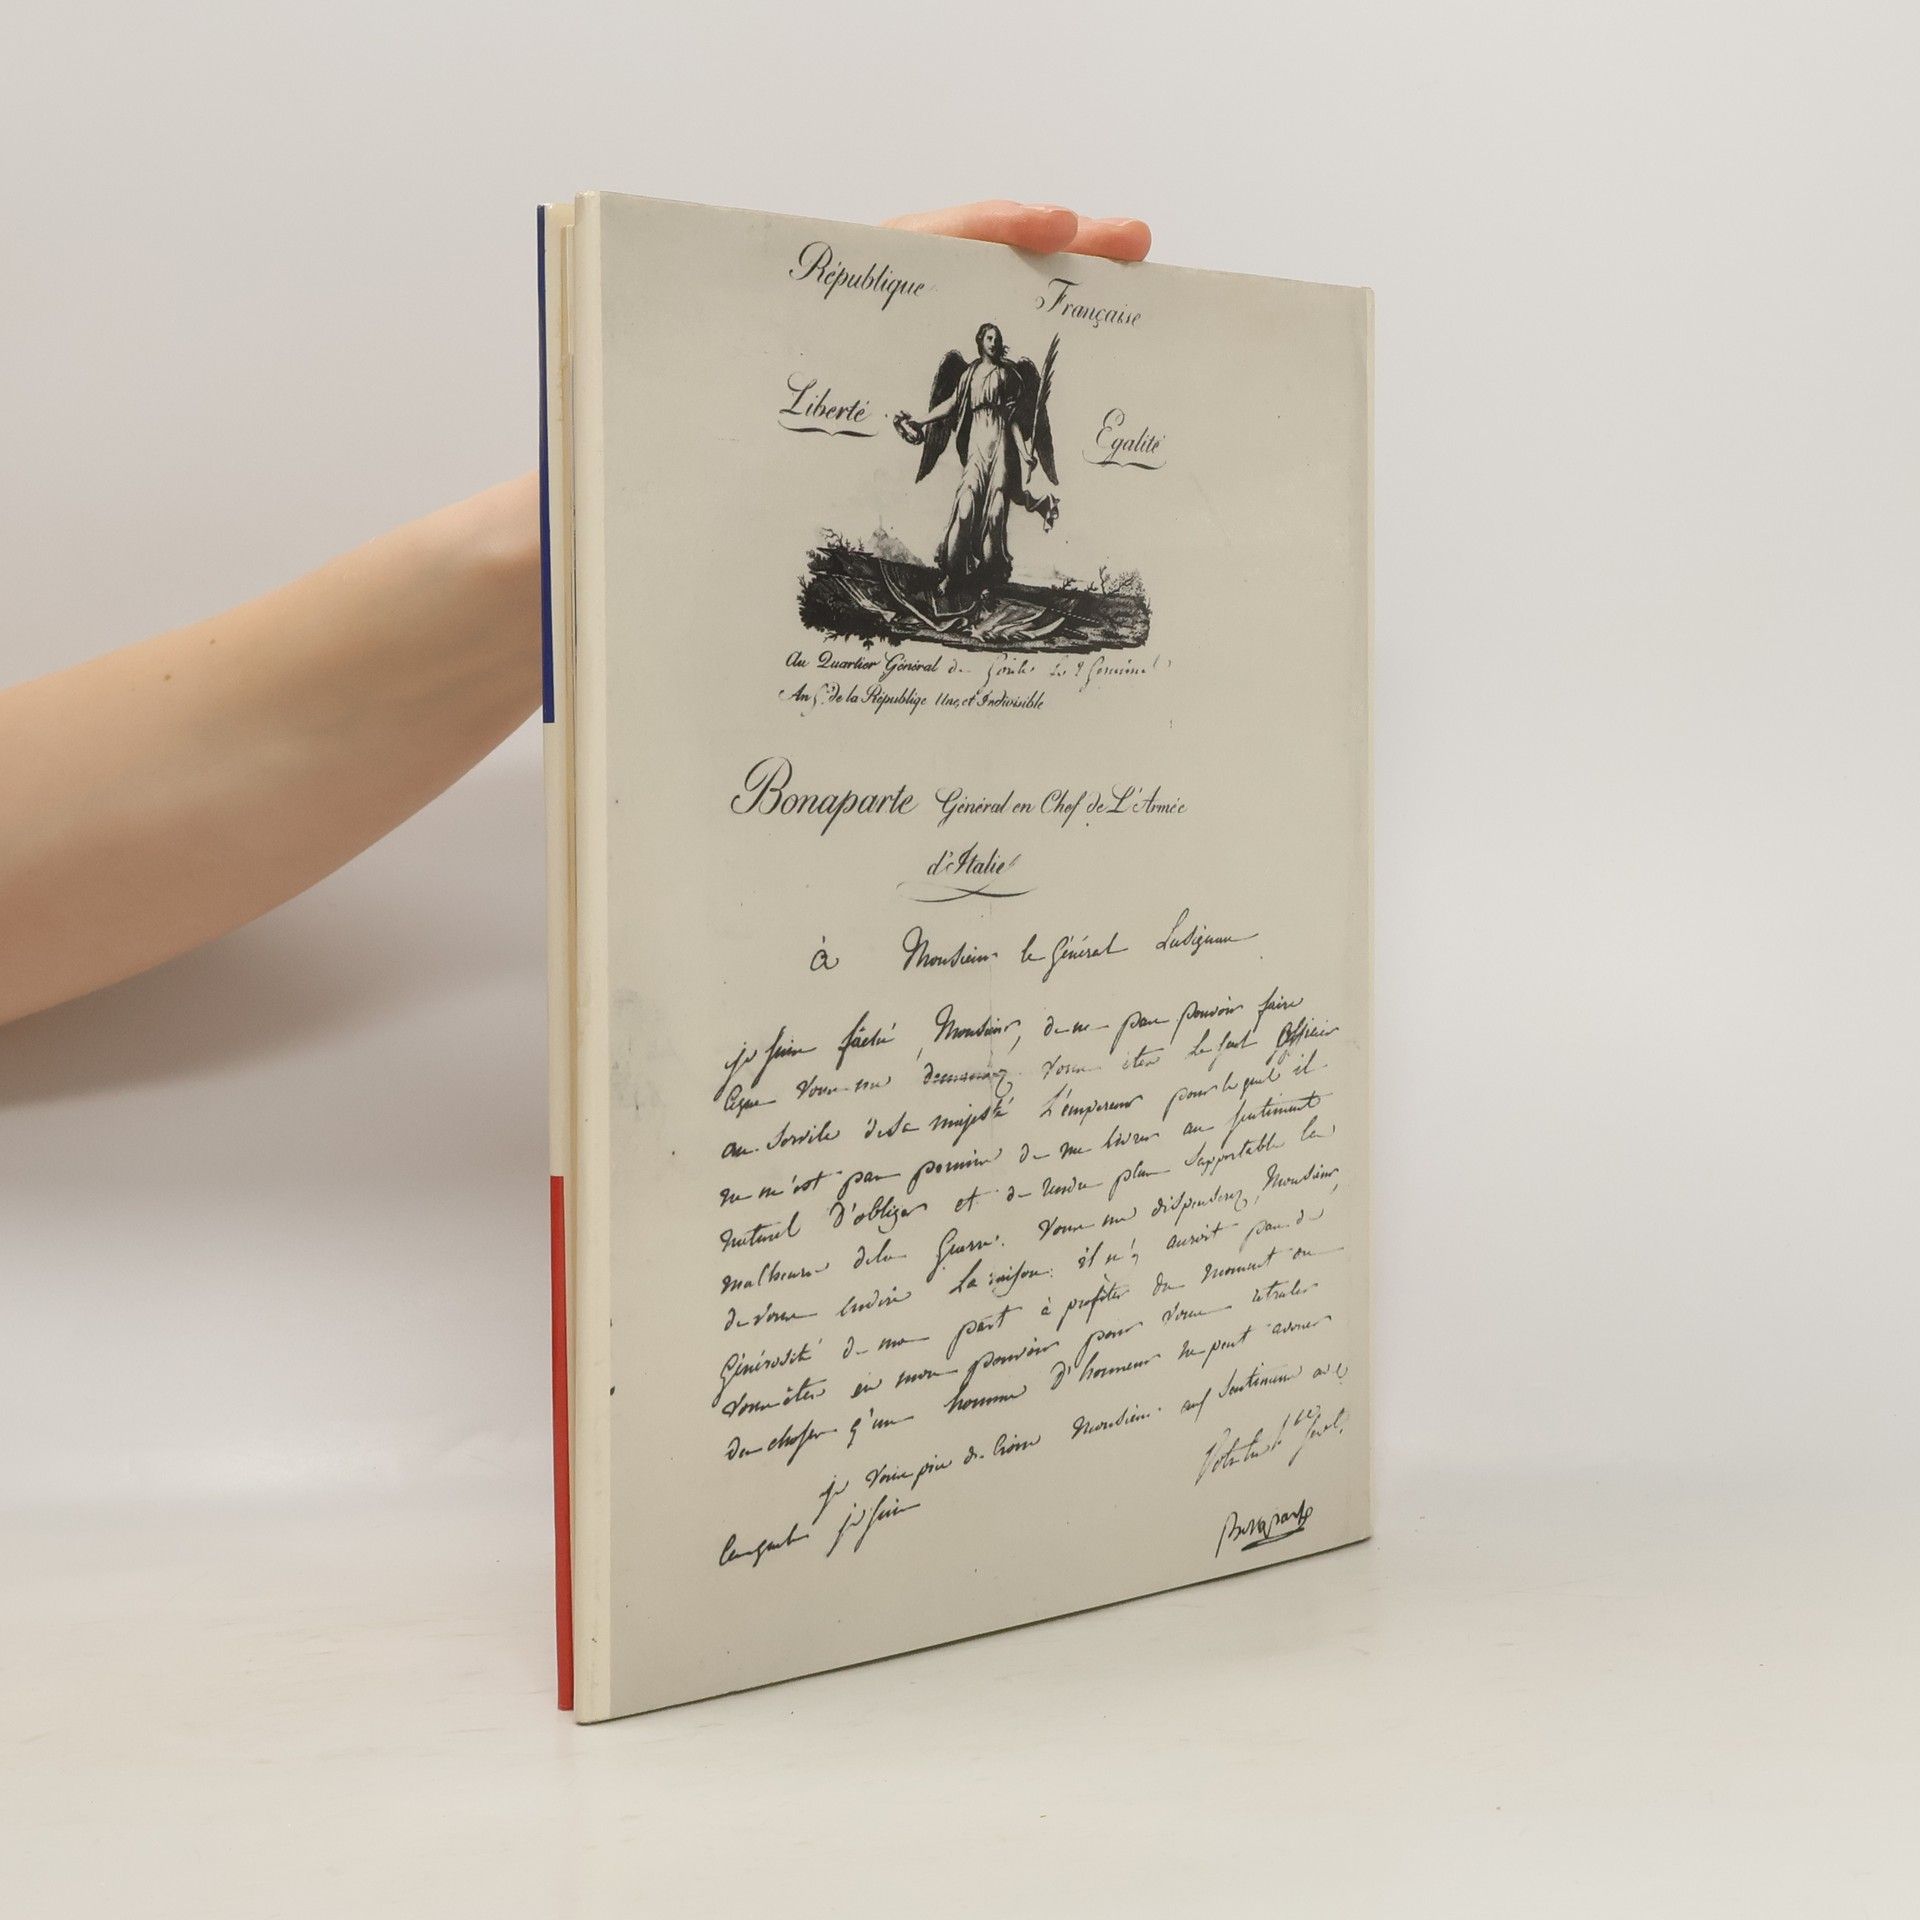 République Française
Liberté Egalité
Au Quartier Général de le 9 Germinal
An 5e de la Républiqe Une, et Indivisible
Bonaparte Général en Chef de L'Armée
d'Italie
à Monsieur le Général Lusignan
je suis fâché, Monsieur, de ne pas pouvoir faire
ce que vous me demandez vous êtes le seul officier
au service de sa majesté L'empereur pour le quel il
ne m'est pas permis de me livrer au sentiment
naturel D'obliger et de rendre plus supportable les
malheurs dela Guerre. vous me dispenserez, Monsieur,
de vous en dire La raison: il n'y auroit pas de
Générosité de ma part à profiter du moment où
vous êtes en mon pouvoir pour vous retracer
des choses q'un homme d'honneur ne peut avouer
je vous prie de croire Monsieur aux sentimens avec
lesquels je suis
Bonaparte